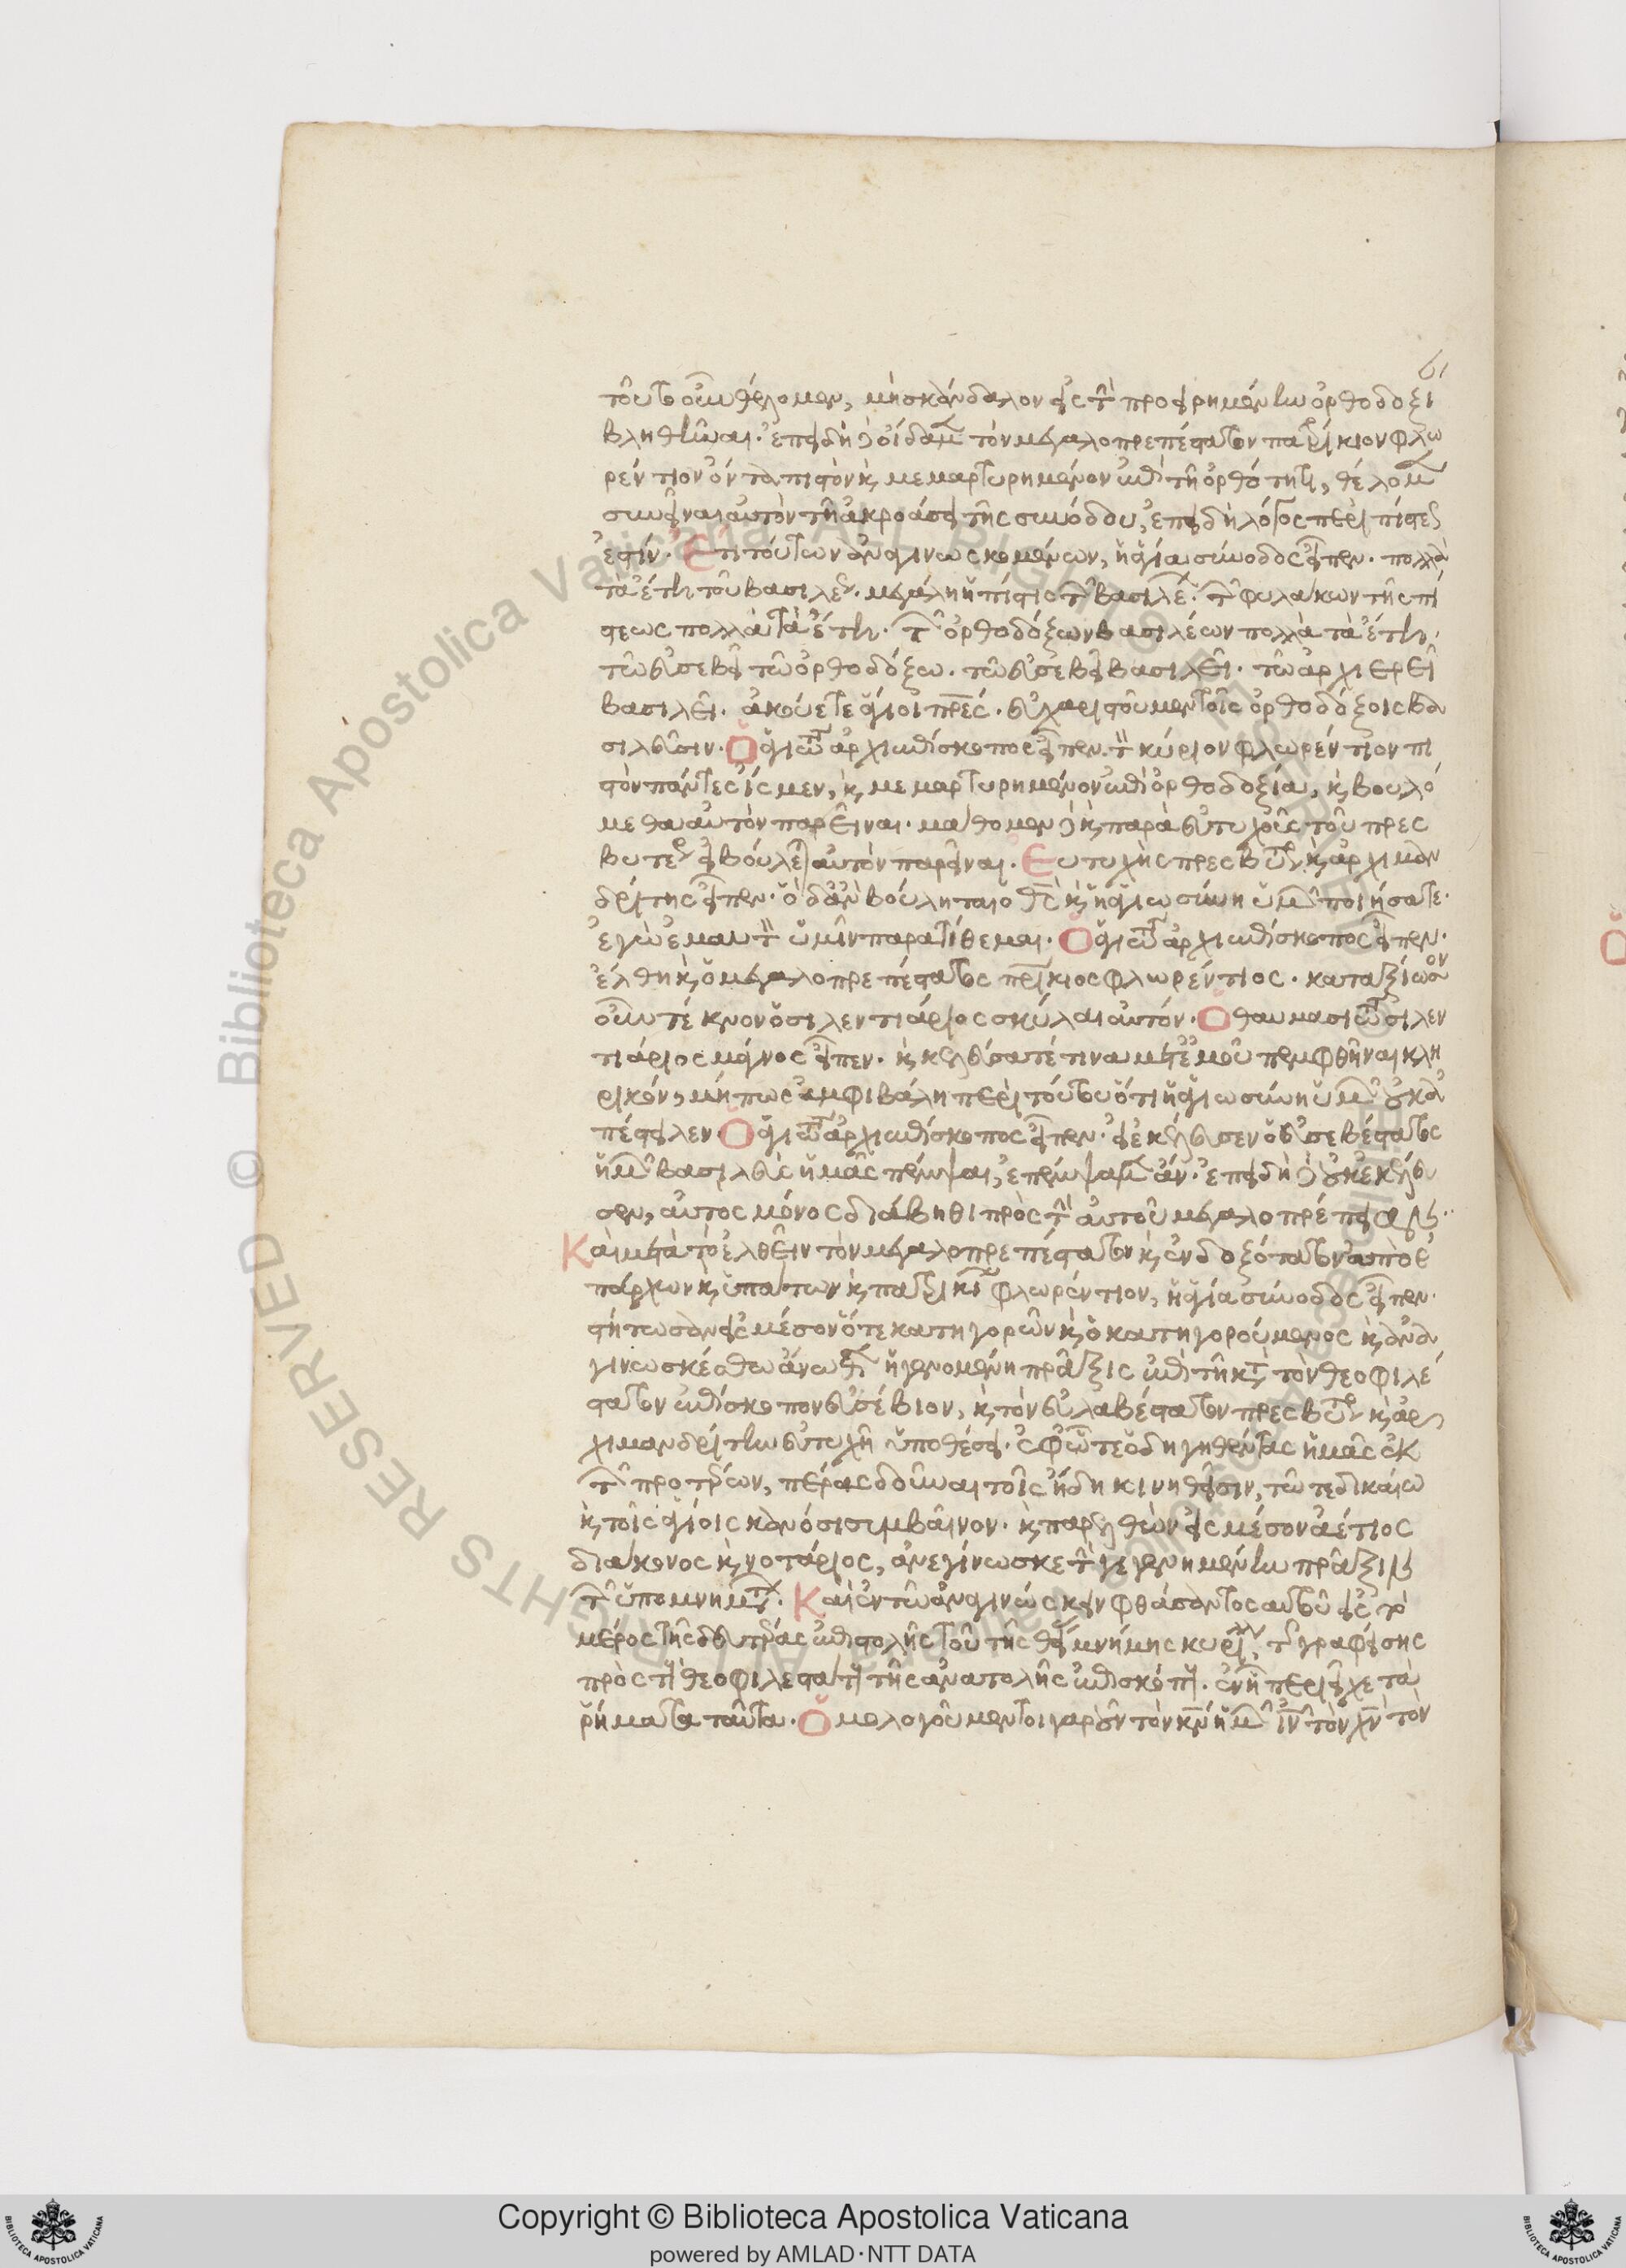 61
τοῦτο οὖν θέλομεν, μὴ σκάνδαλον εἰς τὴν προειρημένην ὀρθοδοξί
βληθῆναι. ἐπειδὴ δὲ οἴδαμεν τὸν μεγαλοπρεπέστατον πατρίκιον φλω
ρέντιον ὄντα πιστὸν καὶ μεμαρτυρημένον ἐπὶ τῇ ὀρθότητι, θέλομεν
συνεῖναι αὐτὸν τῇ ἀκροάσει τῆς συνόδου, ἐπειδὴ λόγος περὶ πίστεως
ἐστίν. Ἔτι τούτων ἀναγινωσκομένων, ἡ ἁγία σύνοδος εἶπεν. πολλὰ
τὰ ἔτη τοῦ βασιλέως. μεγάλη ἡ πίστις τῶν βασιλέων. τῶν φυλάκων τῆς πί
στεως πολλὰ τὰ ἔτη. τῶν ὀρθοδόξων βασιλέων πολλὰ τὰ ἔτη.
τῶ εὐσεβεῖ τῶ ὀρθοδόξω. τῶ εὐσεβεῖ βασιλεῖ. τῶ ἀρχιερεῖ
βασιλεῖ. ἀκούετε ἅγιοι πρες. εὐχαριστοῦμεν τοῖς ὀρθοδόξοις βα
σιλεῦσιν. Ὁ ἁγιώτατος ἀρχιεπίσκοπος εἶπεν. τὸν κύριον φλωρέντιον πι
στὸν πάντες ἴσμεν, καὶ μεμαρτυρημένον ἐπὶ ὀρθοδοξία, καὶ βουλό
μεθα αὐτὸν παρεῖναι. μάθομεν δὲ καὶ παρὰ εὐτυχοῦς τοῦ πρεσ
βυτέρου εἰ βούλεται αὐτὸν παρεῖναι. Εὐτυχὴς πρεσβύτερος καὶ ἀρχιμαν
δρίτης εἶπεν. ὃ δἂν βούληται ὁ θς καὶ ἡ ἁγιωσύνη ὑμῶν ποιήσατε.
ἐγὼ ἐμαυτὸν ὑμῖν παρατίθεμαι. Ὁ ἁγιώτατος ἀρχιεπίσκοπος εἶπεν.
ἔλθη καὶ ὁ μεγαλοπρεπέστατος πρίκιος φλωρέντιος. καταξίωσον
οὖν τέκνον ὁ σιλεντιάριος σκύλαι αὐτόν. Ὁ θαυμασιώτατος σιλεν
τιάριος μάγνος εἶπεν. καὶ κελεύσατέ τινα μετ' ἐμοῦ πεμφθῆναι κλη
ρικόν, μήπως ἀμφιβάλη περὶ τούτου ὅτι ἡ ἁγιωσύνη ὑμῶν οὐκ ἀ
πέστειλεν. Ὁ ἁγιώτατος ἀρχιεπίσκοπος εἶπεν. εἰ ἐκέλευσεν ὁ εὐσεβέστατος
ἡμῶν βασιλεὺς ἡμᾶς πέμψαι, ἐπέμψαμεν ἄν. ἐπειδὴ δὲ οὐκ ἐκέλευ
σεν, αὐτὸς μόνος διάβηθι πρὸς τὴν αὐτοῦ μεγαλοπρέπειαν.
Καὶ μετὰ τὸ ἐλθεῖν τὸν μεγαλοπρεπέστατον καὶ ἐνδοξότατον ἀπὸ ἐ
πάρχων καὶ ὑπάτων καὶ πατρίκιον φλωρέντιον, ἡ ἁγία σύνοδος εἶπεν.
στήτωσαν εἰς μέσον ὅτε κατηγορῶν καὶ ὁ κατηγορούμενος καὶ ἀνα
γινωσκέσθω ἄνωθεν ἡ γενομένη πρᾶξις ἐπὶ τῇ κατὰ τὸν θεοφιλέ
στατον ἐπίσκοπον εὐσέβιον, καὶ τὸν εὐλαβέστατον πρεσβύτερον καὶ ἀρ
χιμανδρίτην εὐτυχῆ ὑποθέσει. ἐφ' ᾧτε ὁδηγηθέντας ἡμᾶς ἐκ
τῶν προτέρων, πέρας δοῦναι τοῖς ἤδη κινηθεῖσιν, τῶ τε δικαίω
καὶ τοῖς ἁγίοις κανόσι συμβαῖνον. καὶ παρελθὼν εἰς μέσον ἀέτιος
διάκονος καὶ νοτάριος, ἀνεγίνωσκε τὴν γεγενημένην πρᾶξιν
τῶν ὑπομνημάτων. Καὶ ἐν τῶ ἀναγινώσκειν φθάσαντος αὐτοῦ εἰς τὸ
μέρος τῆς δευτέρας ἐπιστολῆς τοῦ τῆς θείας μνήμης κυρίλλου, τῆς γραφείσης
πρὸς τοὺς θεοφιλεστάτους τῆς ἀνατολῆς ἐπισκόπους. ἐν ᾗ περιεῖχε τὰ
ῥήματα ταῦτα. Ὁμολογοῦμεν τοιγαροῦν τὸν κν ἡμῶν ιν τὸν χν τὸν
Copyright © Biblioteca Apostolica Vaticana
powered by AMLAD·NTT DATA